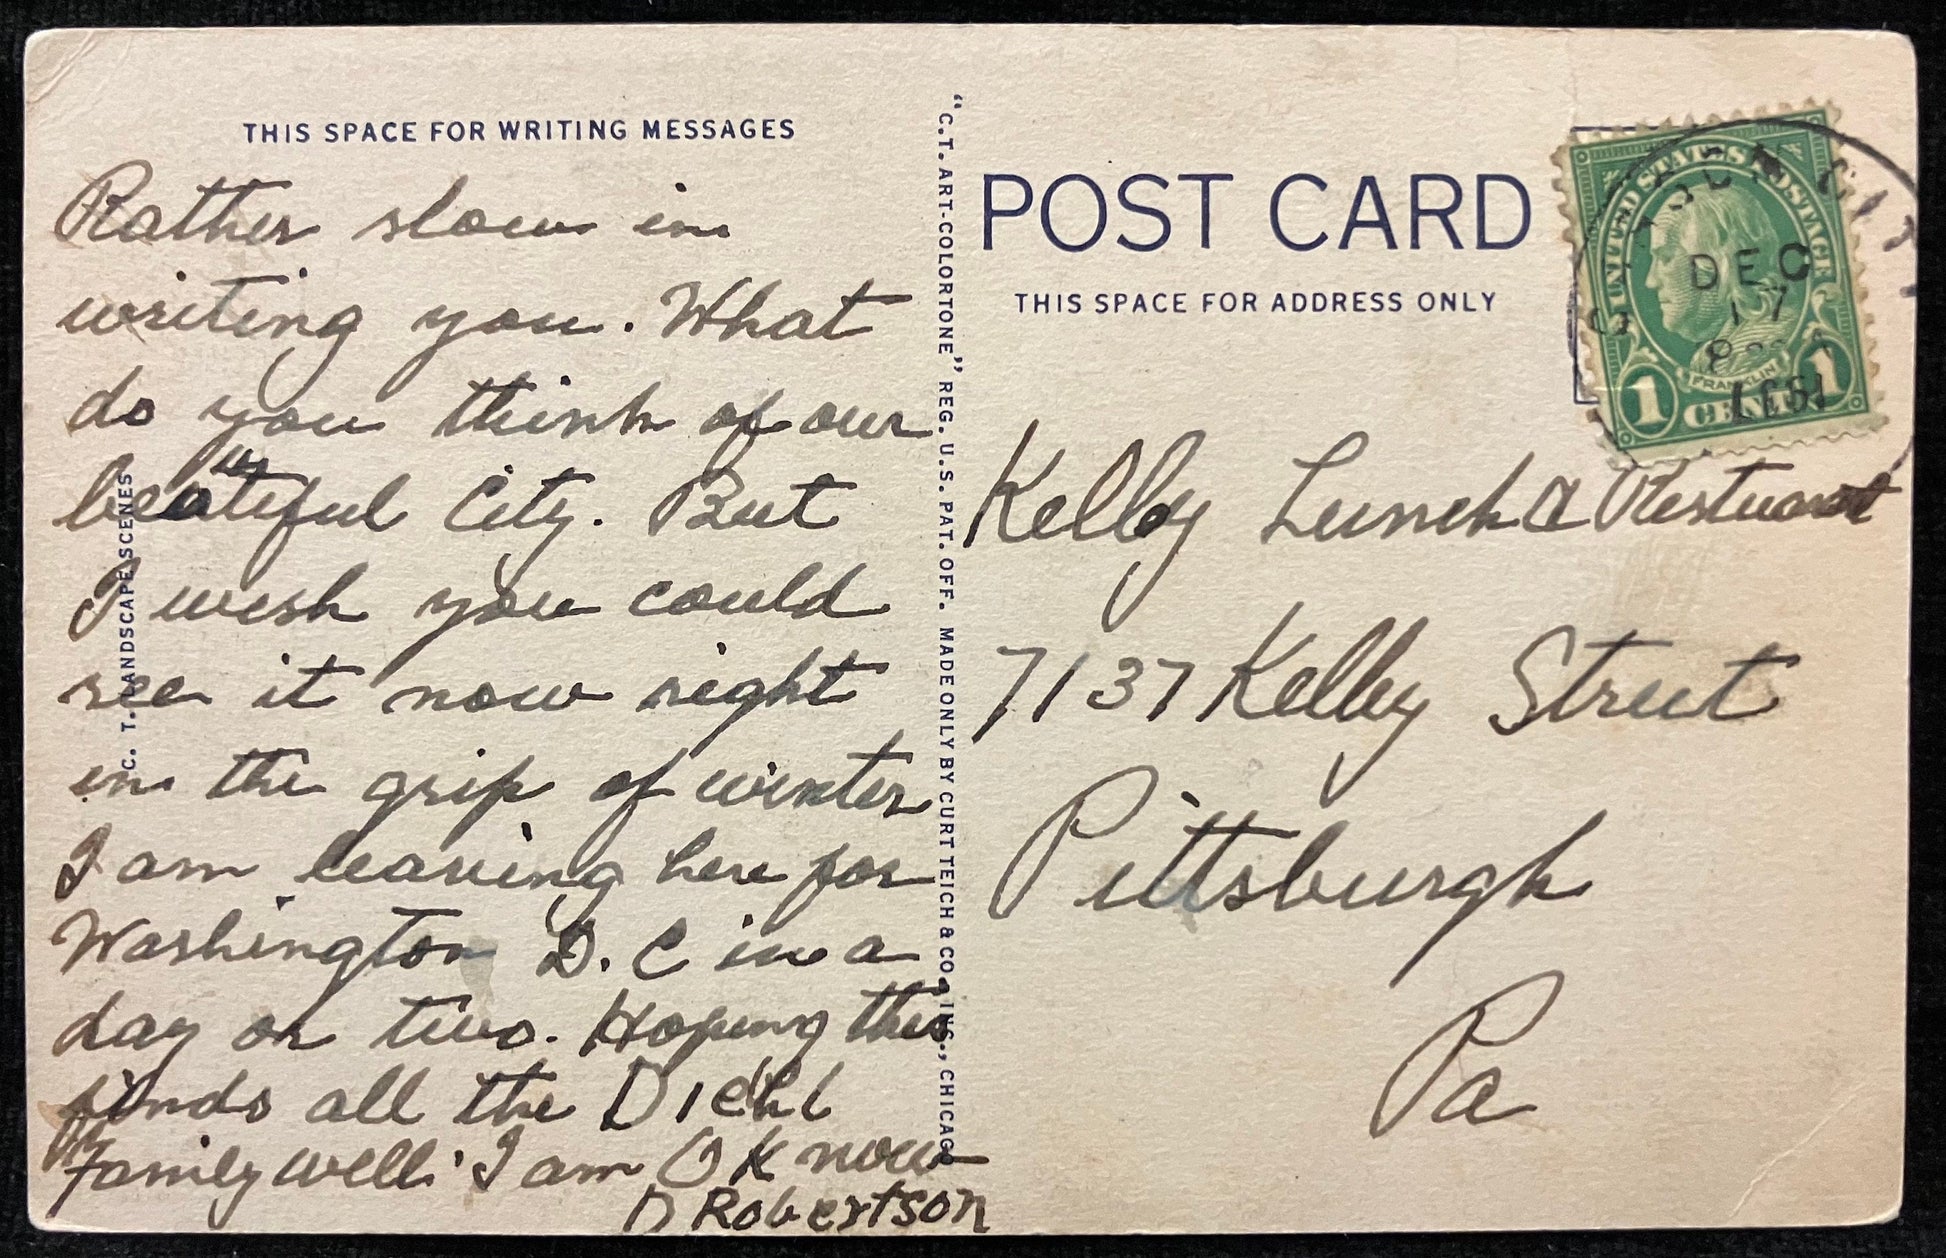 THIS SPACE FOR WRITING MESSAGES
Rather slow in
writing you. What
do you think of our
beautiful City. But
I wish you could
see it now right
in the grip of winter
I am leaving here for
Washington D.C in a
day or two. Hoping this
finds all the Diehl
Family well. I am OK now
D Robertson
C. T. LANDSCAPE SCENES
"C.T. ART-COLORTONE" REG. U.S. PAT. OFF. MADE ONLY BY CURT TEICH & CO., INC., CHICAGO
POST CARD
THIS SPACE FOR ADDRESS ONLY
UNITED STATES POSTAGE
FRANKLIN
1 CENT 1
CITY
DEC
17
Kelly Lunch & Resturant
7137 Kelly Street
Pittsburgh
Pa